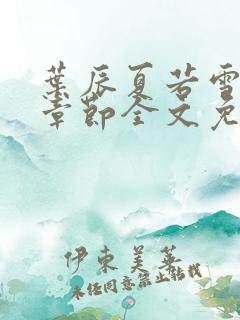 葉辰夏若雪
章節全文免
伊東美英
未经同意禁止转载